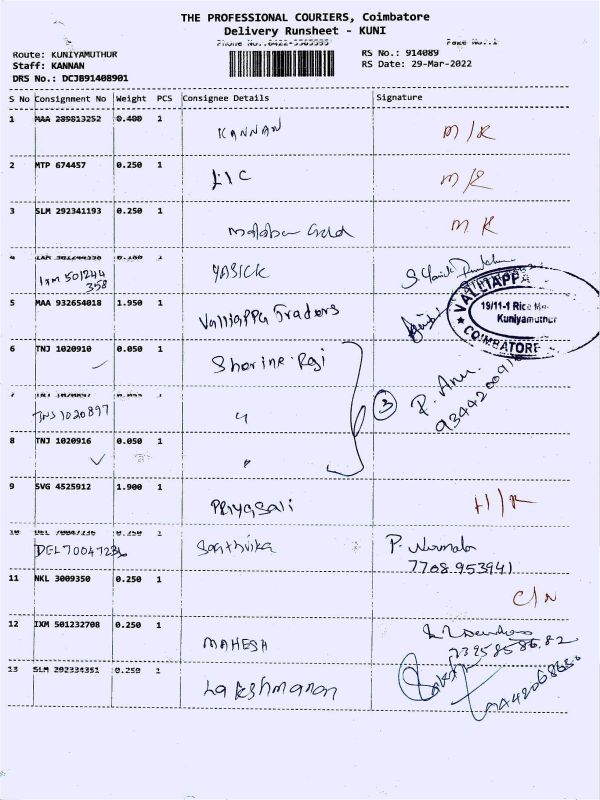 THE PROFESSIONAL COURIERS, Coimbatore
Delivery Runsheet - KUNI
Phone No.:0422-3565595 Page No.:1
Route: KUNIYAMUTHUR RS No.: 914089
Staff: KANNAN RS Date: 29-Mar-2022
DRS No.: DCJB91408901
S No Consignment No Weight PCS Consignee Details Signature
1 MAA 289813252 0.400 1 KANNAN M/R
2 MTP 674457 0.250 1 LIC M/R
3 SLM 292341193 0.250 1 Malabar Gold M R
4 IXM 501244358 0.100 1 YASICK
IXM 501244
358
5 MAA 932654018 1.950 1 Valliappa Traders
VALLIAPPA
19/11-1 Rice
Kuniyamuthur
COIMBATORE
6 TNJ 1020910 0.050 1 Sharine Raj
7 TNJ 1020897 1 "
TNJ 1020897
3 P. Anu
8 TNJ 1020916 0.050 1 "
9 SVG 4525912 1.900 1 Priyasali H/R
10 DEL 70047236 0.250 1 Santhvika P. Nirmala
DEL 70047236 7708953941
11 NKL 3009350 0.250 1 C/N
12 IXM 501232708 0.250 1 MAHESH
13 SLM 292334351 0.250 1 Lakshmanan